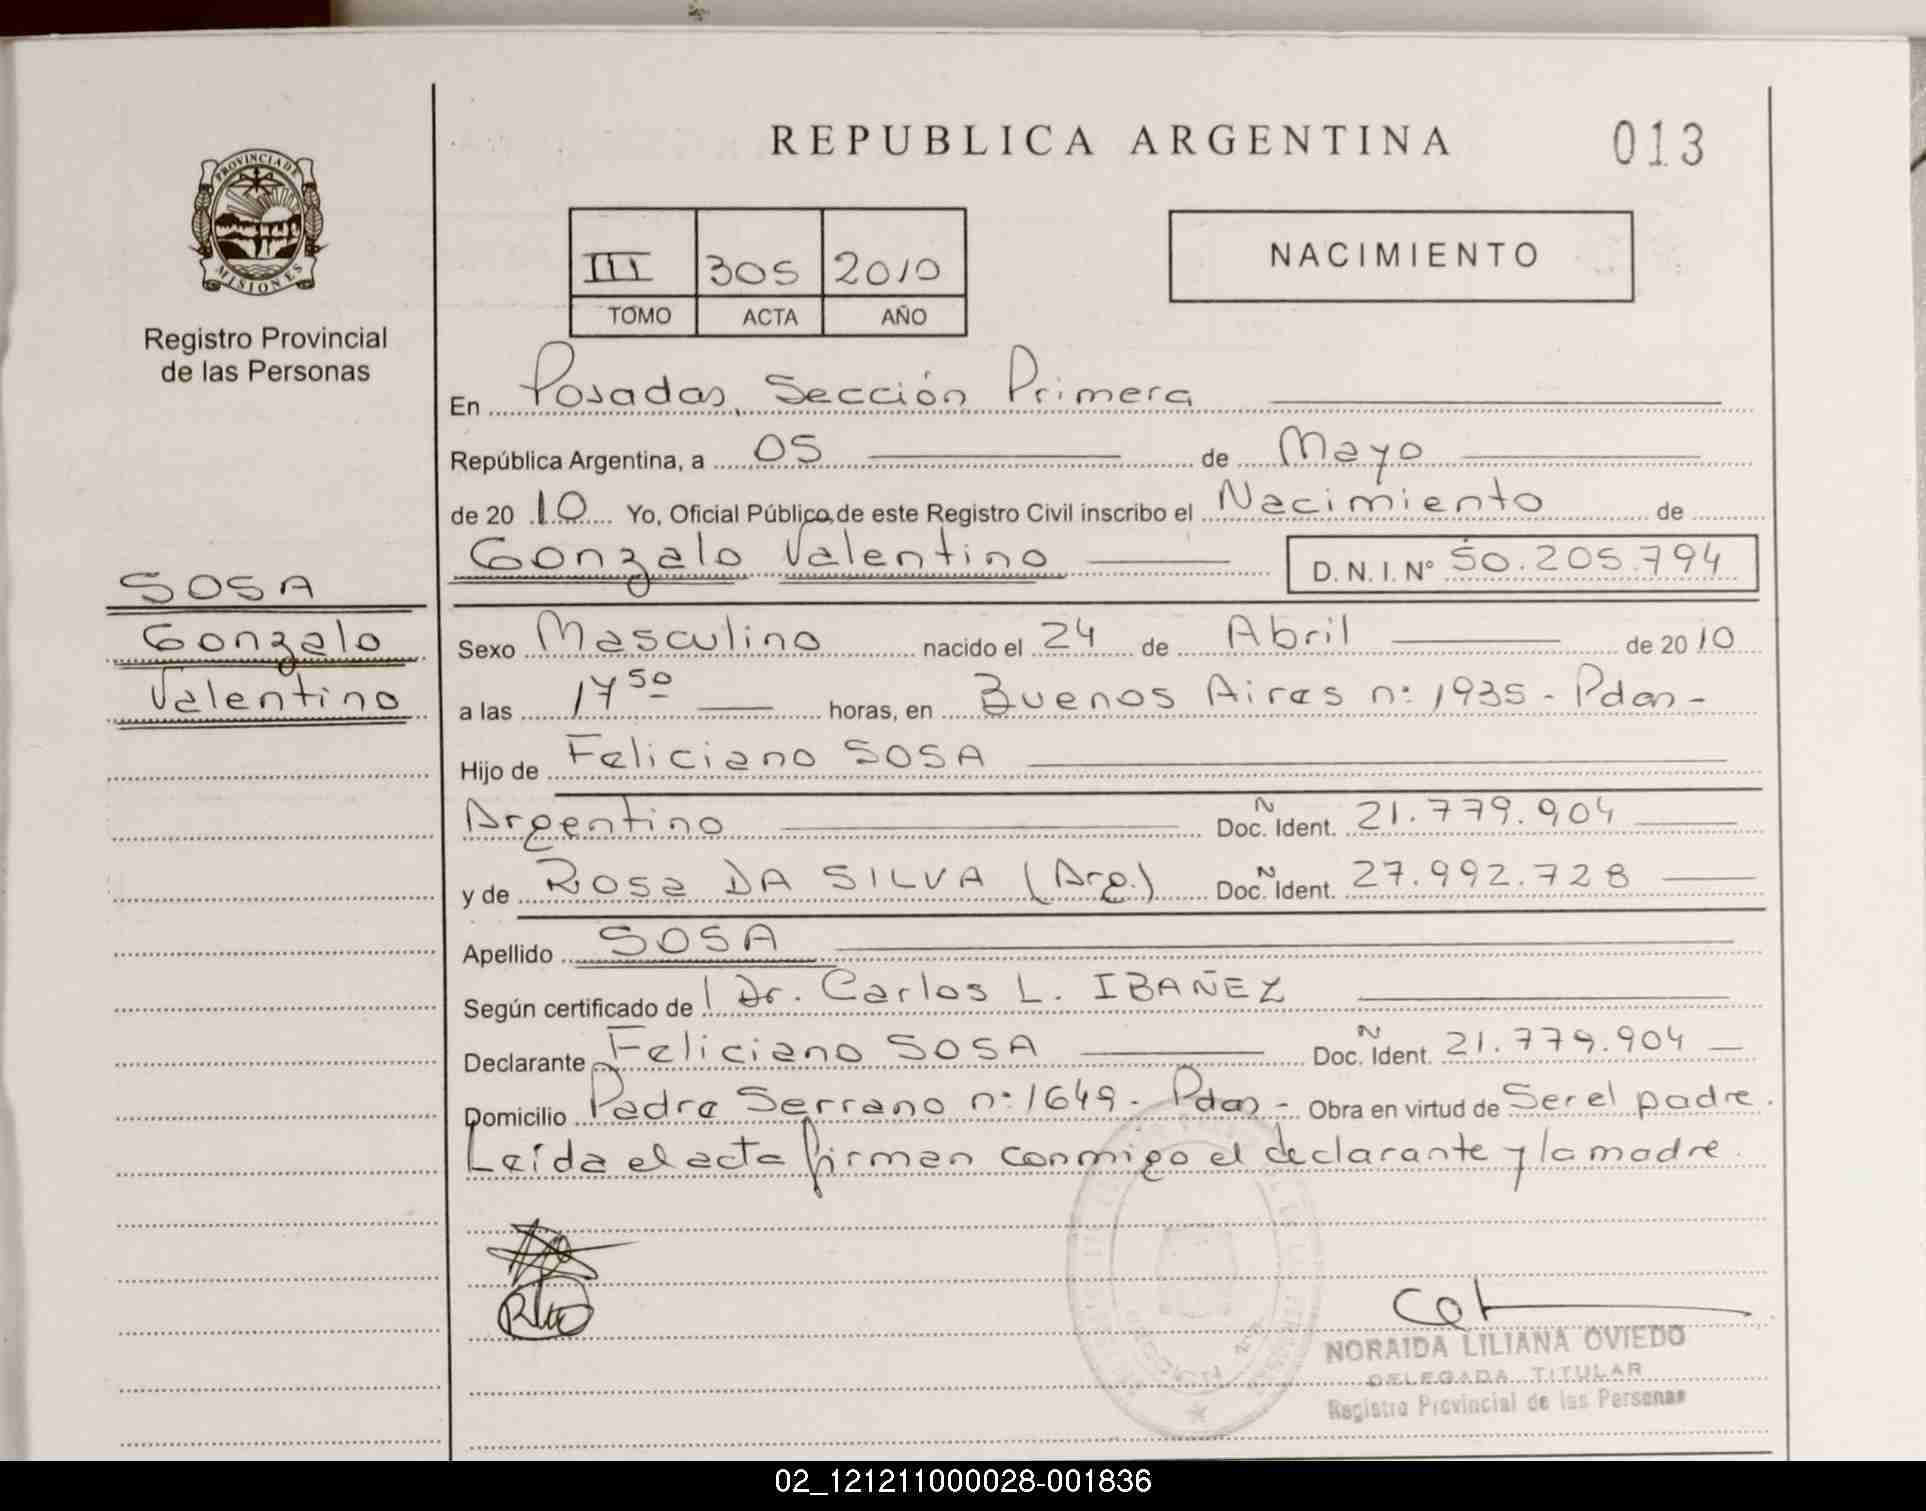 PROVINCIA DE
MISIONES
Registro Provincial
de las Personas
SOSA
Gonzalo
Valentino
REPUBLICA ARGENTINA
013
III 305 2010
TOMO ACTA AÑO
NACIMIENTO
En Posadas, Sección Primera
República Argentina, a 05 de Mayo
de 2010 Yo, Oficial Público, de este Registro Civil inscribo el Nacimiento de
Gonzalo Valentino D.N.I. N° 50.205.794
Sexo Masculino nacido el 24 de Abril de 2010
a las 17 50 horas, en Buenos Aires n: 1935 - Pdas -
Hijo de Feliciano SOSA
Argentino Doc. Ident. N 21.779.904
y de Rosa DA SILVA (Arg.) Doc. Ident. N 27.992.728
Apellido SOSA
Según certificado de Dr. Carlos L. IBAÑEZ
Declarante Feliciano SOSA Doc. Ident. N 21.779.904
Domicilio Padre Serrano n: 1649 - Pdas - Obra en virtud de Ser el padre.
Leída el acta firman conmigo el declarante y la madre.
NORAIDA LILIANA OVIEDO
DELEGADA TITULAR
Registro Provincial de las Personas
02_121211000028-001836